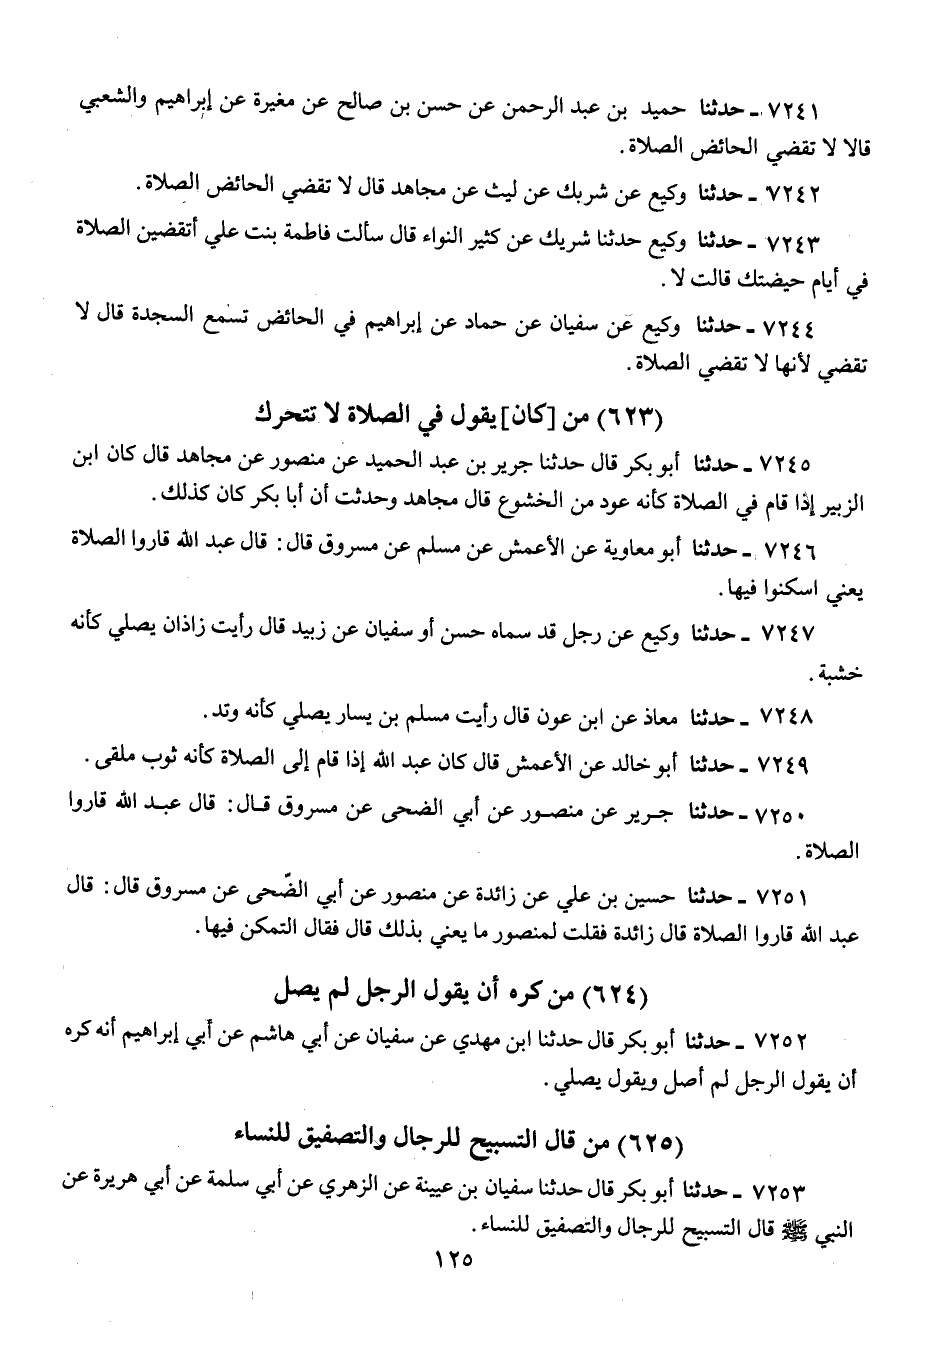 ٧٢٤١ ـ حدثنا حميد بن عبد الرحمن عن حسن بن صالح عن مغيرة عن إبراهيم والشعبي
قالا لا تقضي الحائض الصلاة.
٧٢٤٢ ـ حدثنا وكيع عن شريك عن ليث عن مجاهد قال لا تقضي الحائض الصلاة.
٧٢٤٣ ـ حدثنا وكيع حدثنا شريك عن كثير النواء قال سألت فاطمة بنت علي أتقضين الصلاة
في أيام حيضتك قالت لا.
٧٢٤٤ ـ حدثنا وكيع عن سفيان عن حماد عن إبراهيم في الحائض تسمع السجدة قال لا
تقضي لأنها لا تقضي الصلاة.
(٦٢٣) من [كان] يقول في الصلاة لا تتحرك
٧٢٤٥ ـ حدثنا أبو بكر قال حدثنا جرير بن عبد الحميد عن منصور عن مجاهد قال كان ابن
الزبير إذا قام في الصلاة كأنه عود من الخشوع قال مجاهد وحدثت أن أبا بكر كان كذلك.
٧٢٤٦ ـ حدثنا أبو معاوية عن الأعمش عن مسلم عن مسروق قال: قال عبد الله قاروا الصلاة
يعني اسكنوا فيها.
٧٢٤٧ ـ حدثنا وكيع عن رجل قد سماه حسن أو سفيان عن زبيد قال رأيت زاذان يصلي كأنه
خشبة.
٧٢٤٨ ـ حدثنا معاذ عن ابن عون قال رأيت مسلم بن يسار يصلي كأنه وتد.
٧٢٤٩ ـ حدثنا أبو خالد عن الأعمش قال كان عبد الله إذا قام إلى الصلاة كأنه ثوب ملقى.
٧٢٥٠ ـ حدثنا جرير عن منصور عن أبي الضحى عن مسروق قال: قال عبد الله قاروا
الصلاة.
٧٢٥١ ـ حدثنا حسين بن علي عن زائدة عن منصور عن أبي الضّحى عن مسروق قال: قال
عبد الله قاروا الصلاة قال زائدة فقلت لمنصور ما يعني بذلك قال فقال التمكن فيها.
(٦٢٤) من كره أن يقول الرجل لم يصل
٧٢٥٢ ـ حدثنا أبو بكر قال حدثنا ابن مهدي عن سفيان عن أبي هاشم عن أبي إبراهيم أنه كره
أن يقول الرجل لم أصل ويقول يصلي.
(٦٢٥) من قال التسبيح للرجال والتصفيق للنساء
٧٢٥٣ ـ حدثنا أبو بكر قال حدثنا سفيان بن عيينة عن الزهري عن أبي سلمة عن أبي هريرة عن
النبي ﷺ قال التسبيح للرجال والتصفيق للنساء.
١٢٥